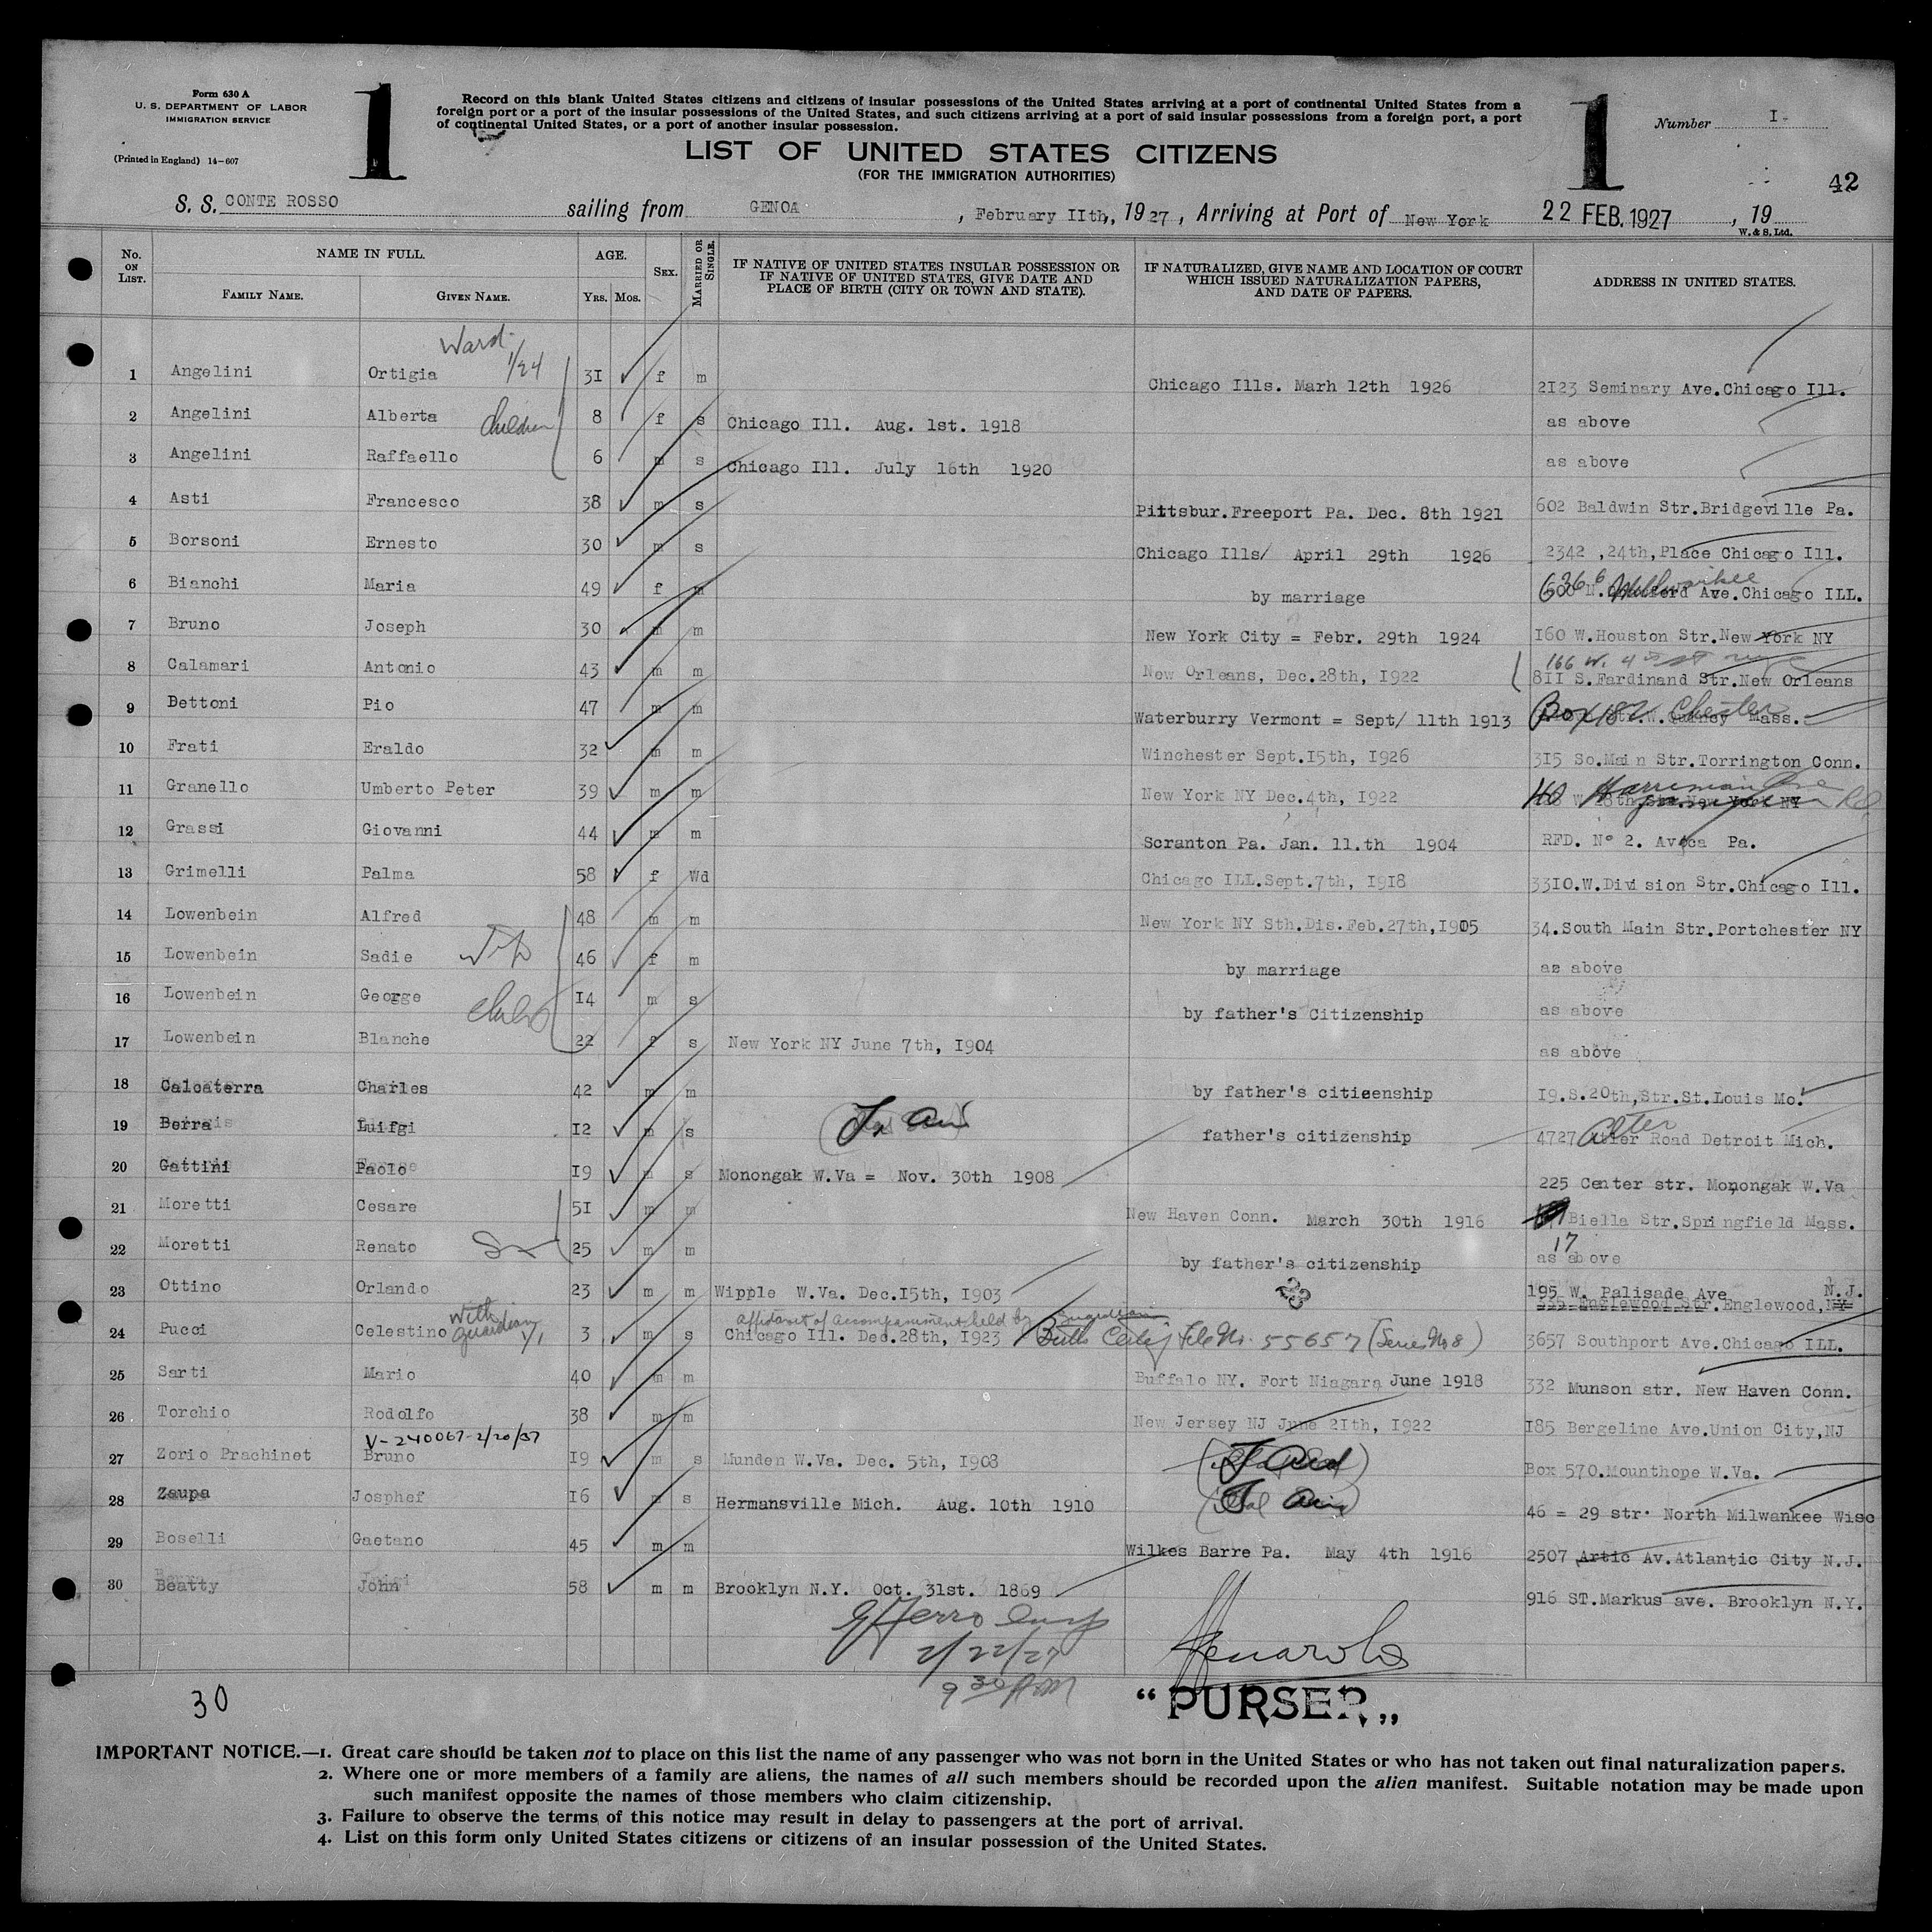 Form 630 A
U. S. DEPARTMENT OF LABOR
IMMIGRATION SERVICE
(Printed in England) 14-607
1
Record on this blank United States citizens and citizens of insular possessions of the United States arriving at a port of continental United States from a
foreign port or a port of the insular possessions of the United States, and such citizens arriving at a port of said insular possessions from a foreign port, a port
of continental United States, or a port of another insular possession.
1
Number I-
LIST OF UNITED STATES CITIZENS
(FOR THE IMMIGRATION AUTHORITIES)
42
S. S. CONTE ROSSO sailing from GENOA , February IIth, 1927 , Arriving at Port of New York 22 FEB. 1927 , 19
W. & S. Ltd.
No. ON LIST. NAME IN FULL. FAMILY NAME. GIVEN NAME. AGE. YRS. MOS. SEX. MARRIED OR SINGLE. IF NATIVE OF UNITED STATES INSULAR POSSESSION OR IF NATIVE OF UNITED STATES, GIVE DATE AND PLACE OF BIRTH (CITY OR TOWN AND STATE). IF NATURALIZED, GIVE NAME AND LOCATION OF COURT WHICH ISSUED NATURALIZATION PAPERS, AND DATE OF PAPERS. ADDRESS IN UNITED STATES.
Ward
1/24
1 Angelini Ortigia 3I f m Chicago Ills. Marh 12th 1926 2I23 Seminary Ave.Chicago Ill.
2 Angelini Alberta children 8 f s Chicago Ill. Aug. 1st. 1918 as above
3 Angelini Raffaello 6 m s Chicago Ill. July 16th 1920 as above
4 Asti Francesco 38 m s Pittsbur.Freeport Pa. Dec. 8th 1921 602 Baldwin Str.Bridgeville Pa.
5 Borsoni Ernesto 30 m s Chicago Ills/ April 29th 1926 2342 ,24th,Place Chicago Ill.
6 Bianchi Maria 49 f m by marriage 6366 Milwaukee Ave.Chicago ILL.
7 Bruno Joseph 30 m m New York City = Febr. 29th 1924 I60 W.Houston Str.New York NY
8 Calamari Antonio 43 m m New Orleans, Dec.28th, I922 8II S.Fardinand Str.New Orleans
166 W. 4th St
9 Bettoni Pio 47 m m Waterburry Vermont = Sept/ 11th 1913 Box 182 Chester Mass.
10 Frati Eraldo 32 m m Winchester Sept.I5th, I926 3I5 So.Main Str.Torrington Conn.
11 Granello Umberto Peter 39 m m New York NY Dec.4th, I922 Harriman
12 Grassi Giovanni 44 m m Scranton Pa. Jan. 11.th 1904 RFD. No 2. Avoca Pa.
13 Grimelli Palma 58 f Wd Chicago ILL.Sept.7th, I9I8 33I0.W.Division Str.Chicago Ill.
14 Lowenbein Alfred 48 m m New York NY Sth.Dis.Feb.27th,I905 34.South Main Str.Portchester NY
15 Lowenbein Sadie 46 f m by marriage as above
16 Lowenbein George I4 m s by father's Citizenship as above
17 Lowenbein Blanche 22 f s New York NY June 7th, I904 as above
18 Calcaterra Charles 42 m m by father's citieenship I9.S.20th,Str.St.Louis Mo.
19 Berra Luifgi I2 m s father's citizenship 4727 Alter Road Detroit Mich.
20 Gattini Paolo I9 m s Monongak W.Va = Nov. 30th 1908 225 Center str. Monongak W.Va
21 Moretti Cesare 5I m m New Haven Conn. March 30th 1916 Biella Str.Springfield Mass.
17
22 Moretti Renato Son 25 m m by father's citizenship as above
23 Ottino Orlando 23 m m Wipple W.Va. Dec.I5th, I903 195 W. Palisade Ave N.J.
Englewood Str.Englewood,NY
23
with guardian 1/1
affidavit of accompaniment held by guardian
24 Pucci Celestino 3 m s Chicago Ill. Dec.28th, I923 Birth Certif File No. 55657 (Series No 8) 3657 Southport Ave.Chicago ILL.
25 Sarti Mario 40 m m Buffalo NY. Fort Niagara June 1918 332 Munson str. New Haven Conn.
26 Torchio Rodolfo 38 m m New Jersey NJ June 2Ith, I922 I85 Bergeline Ave.Union City,NJ
V-240067-2/20/37
27 Zorio Prachinet Bruno I9 m s Munden W.Va. Dec. 5th, I908 Box 570.Mounthope W.Va.
28 Zaupa Josphef I6 m s Hermansville Mich. Aug. 10th 1910 46 = 29 str. North Milwankee Wisc
29 Boselli Gaetano 45 m m Wilkes Barre Pa. May 4th 1916 2507 Artic Av.Atlantic City N.J.
30 Beatty John 58 m m Brooklyn N.Y. Oct. 31st. 1869 916 ST.Markus ave. Brooklyn N.Y.
2/22/27
9 30 AM
30
"PURSER„
IMPORTANT NOTICE.—1. Great care should be taken not to place on this list the name of any passenger who was not born in the United States or who has not taken out final naturalization papers.
2. Where one or more members of a family are aliens, the names of all such members should be recorded upon the alien manifest. Suitable notation may be made upon
such manifest opposite the names of those members who claim citizenship.
3. Failure to observe the terms of this notice may result in delay to passengers at the port of arrival.
4. List on this form only United States citizens or citizens of an insular possession of the United States.